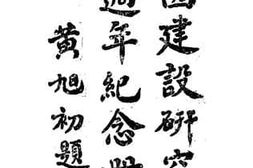 建設研究
週年紀念
黃旭初題